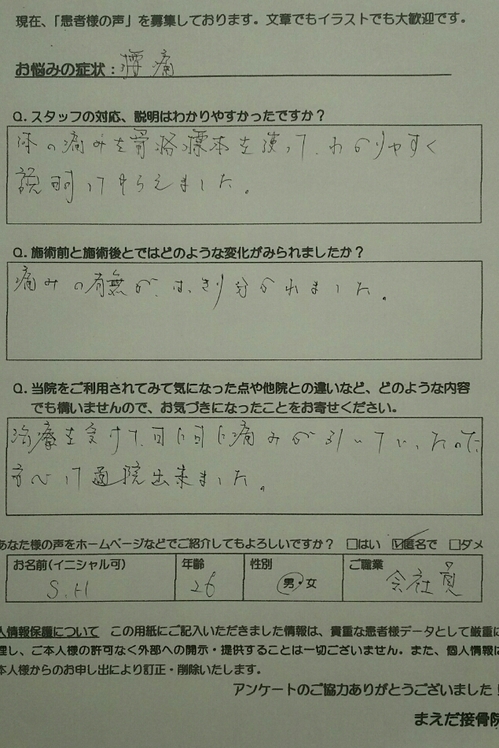 現在、「患者様の声」を募集しております。文章でもイラストでも大歓迎です。
お悩みの症状：腰痛
Q.スタッフの対応、説明はわかりやすかったですか？
体の痛みを骨格標本を使って、わかりやすく
説明してもらえました。
Q.施術前と施術後とではどのような変化がみられましたか？
痛みの有無が、はっきり分かれました。
Q.当院をご利用されてみて気になった点や他院との違いなど、どのような内容
でも構いませんので、お気づきになったことをお寄せください。
治療を受けて、日に日に痛みが引いていったので、
安心して通院出来ました。
あなた様の声をホームページなどでご紹介してもよろしいですか？ □はい ☑匿名で □ダメ
お名前(イニシャル可) 年齢 性別 ご職業
S.H 26 男・女 会社員
人情報保護について この用紙にご記入いただきました情報は、貴重な患者様データとして厳重に
理し、ご本人様の許可なく外部への開示・提供することは一切ございません。また、個人情報は
本人様からのお申し出により訂正・削除いたします。
アンケートのご協力ありがとうございました！
まえだ接骨院